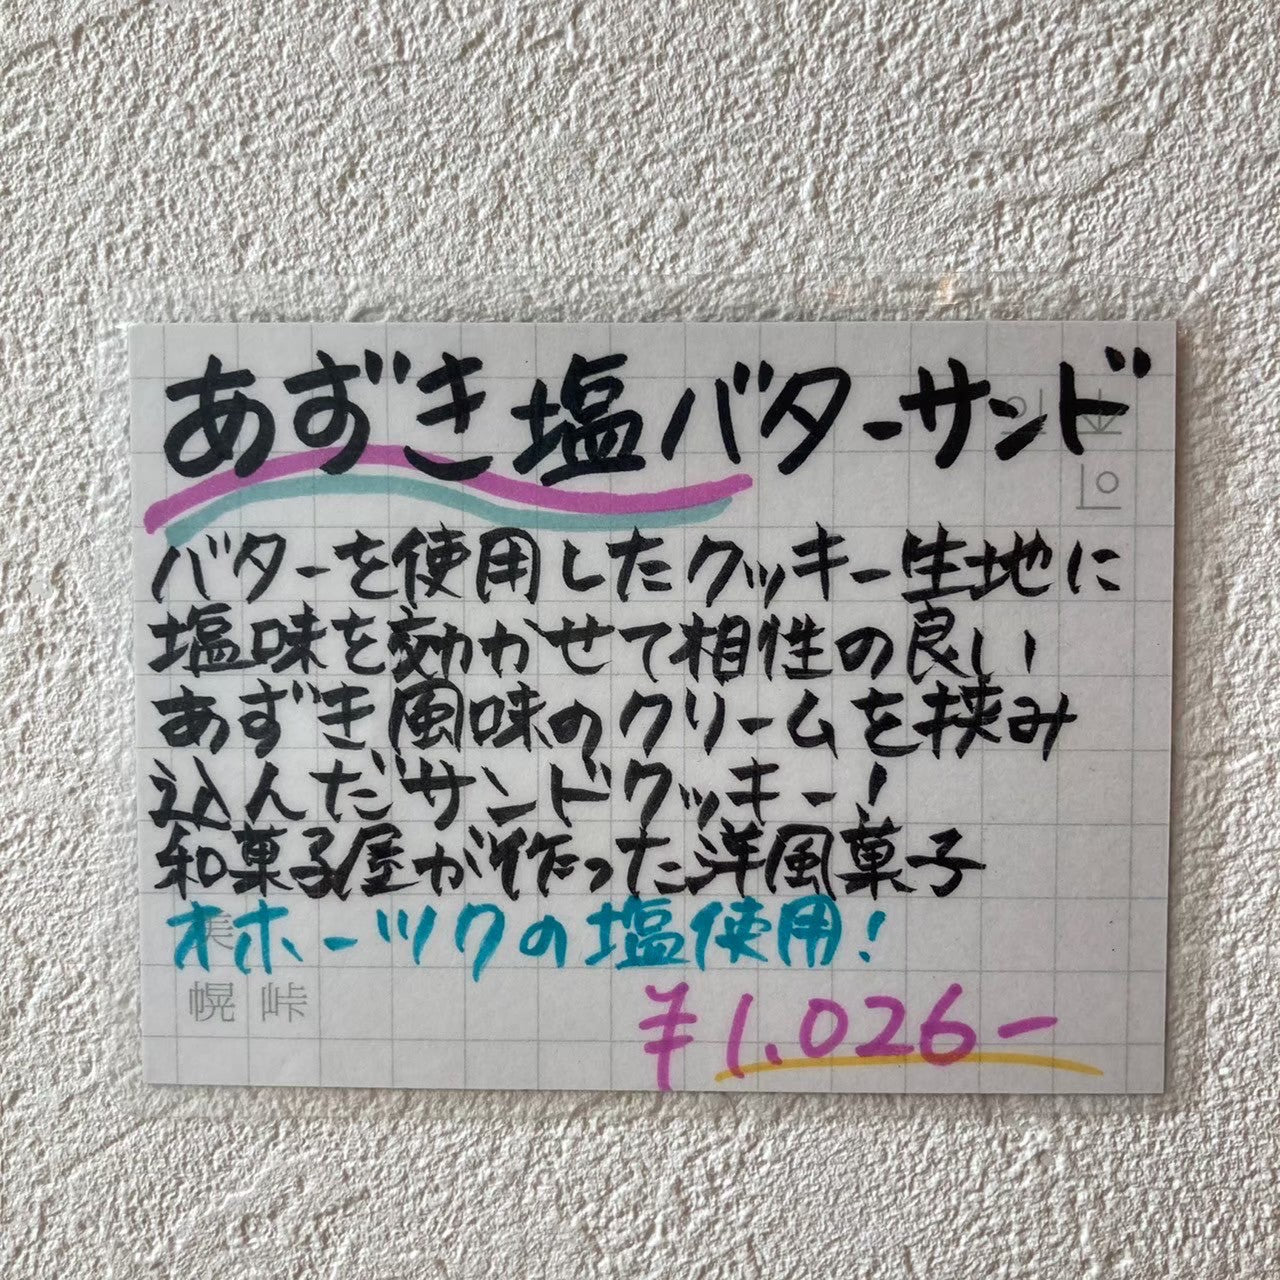 あずき塩バターサンド
バターを使用したクッキー生地に
塩味を効かせて相性の良い
あずき風味のクリームを挟み
込んだサンドクッキー!
和菓子屋が作った洋風菓子
オホーツクの塩使用!
美
幌 峠
¥1.026-